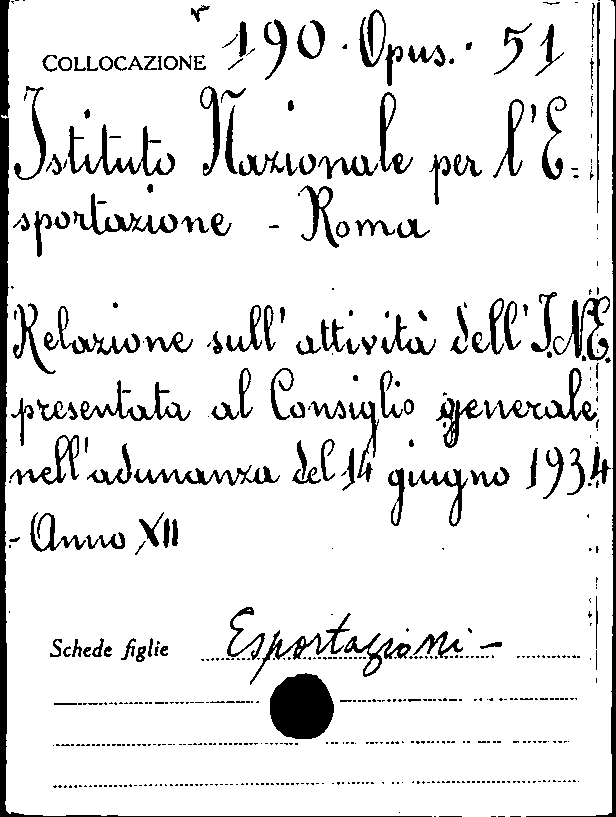 COLLOCAZIONE 190 · Opus. · 51
Istituto Nazionale per l'E-
sportazione - Roma
Relazione sull'attività dell'I.N.E.
presentata al Consiglio generale
nell'adunanza del 14 giugno 1934
- Anno XII
Schede figlie Esportazioni -